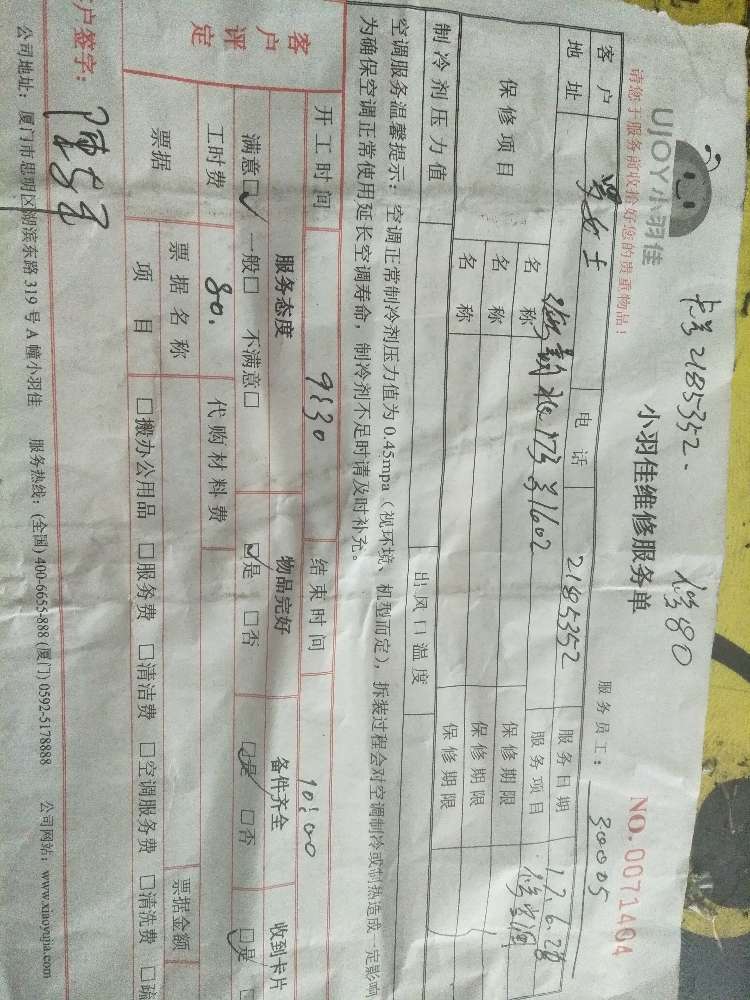 卡号2185352.
修80
UJOY小羽佳
小羽佳维修服务单
NO.0071404
请您于服务前收拾好您的贵重物品！
服务员工：30005
客户 女士 电话 2185352 服务日期 17.6.28
地址 173号1602 服务项目 修空调
保修项目 名称 保修期限
名称 保修期限
名称 保修期限
制冷剂压力值 出风口温度
空调服务温馨提示：空调正常制冷剂压力值为0.45mpa（视环境、机型而定），拆装过程会对空调制冷或制热造成一定影响
为确保空调正常使用延长空调寿命，制冷剂不足时请及时补充。
客户评定
开工时间 9:30 结束时间 10:00
服务态度 物品完好 备件齐全 收到卡片
满意☑ 一般□ 不满意□ ☑是 □否 ☑是 □否 ☑是 □
工时费 80. 代购材料费
票据 票据名称 票据金额
项目 □搬办公用品 □服务费 □清洁费 □空调服务费 □清洗费 □疏
户签字：
公司地址：厦门市思明区湖滨东路319号A幢小羽佳 服务热线：(全国)400-6655-888 (厦门)0592-5178888 公司网站：www.xiaoyujia.com